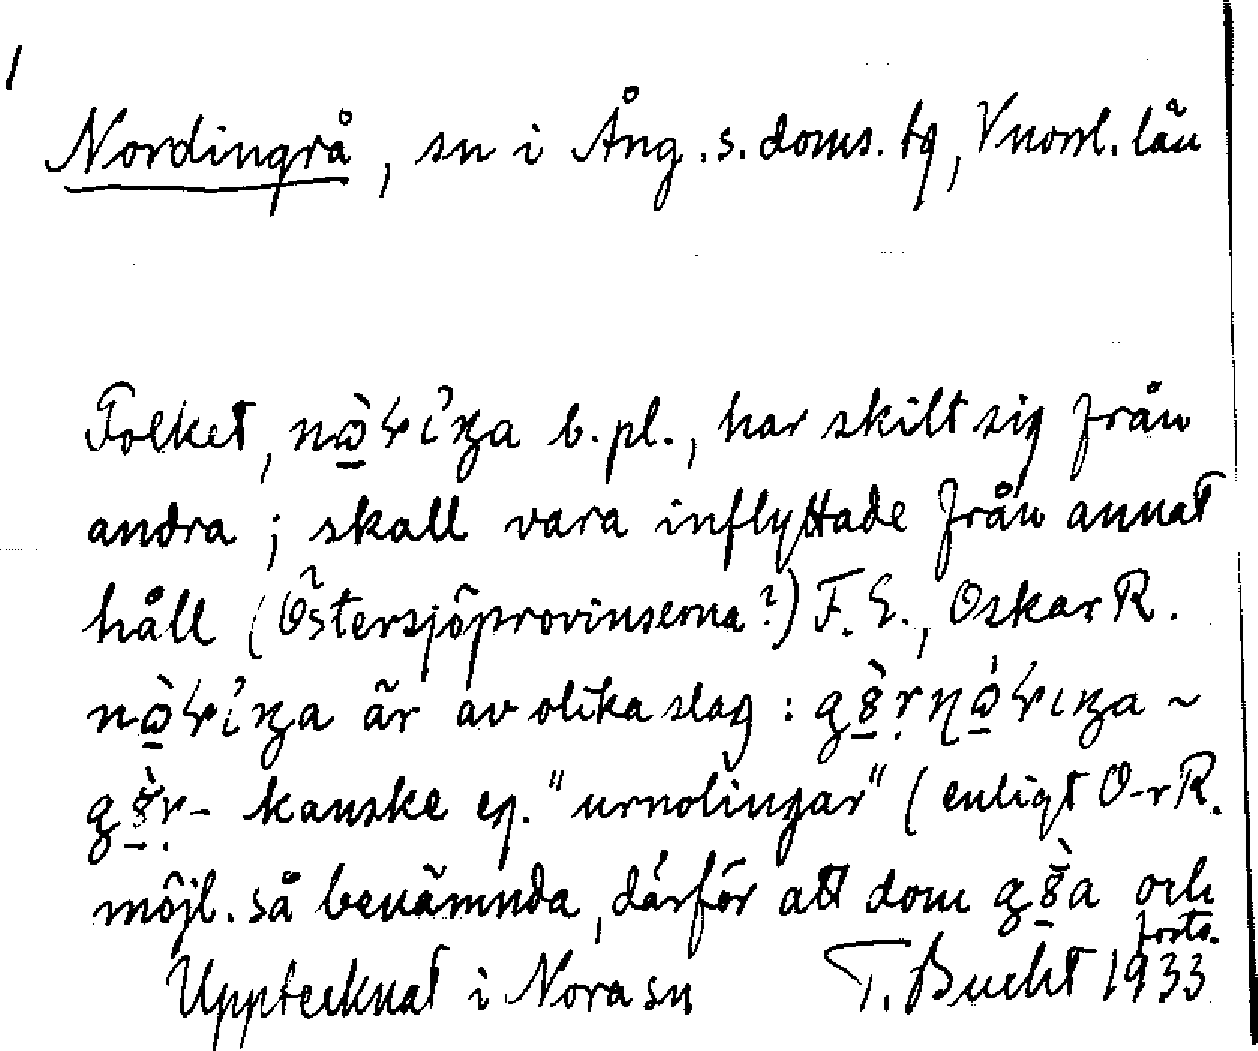 1
Nordingrå, sn i Ång. s. doms. tg, Vnorrl. län
Folket, b. pl., har skilt sig från
andra; skall vara inflyttade från annat
håll (Östersjöprovinserna?) F. E., Oskar R.
är av olika slag: ~
kanske eg. "urnolingar" (enligt O-r R.
möjl. så benämnda, därför att dom och
forts.
Upptecknat i Nora sn T. Bucht 1933